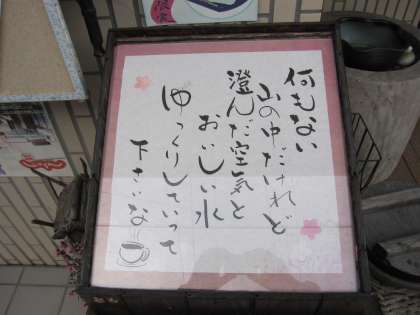 何もない
山の中だけれど
澄んだ空気と
おいしい水
ゆっくりしていって
下さいな